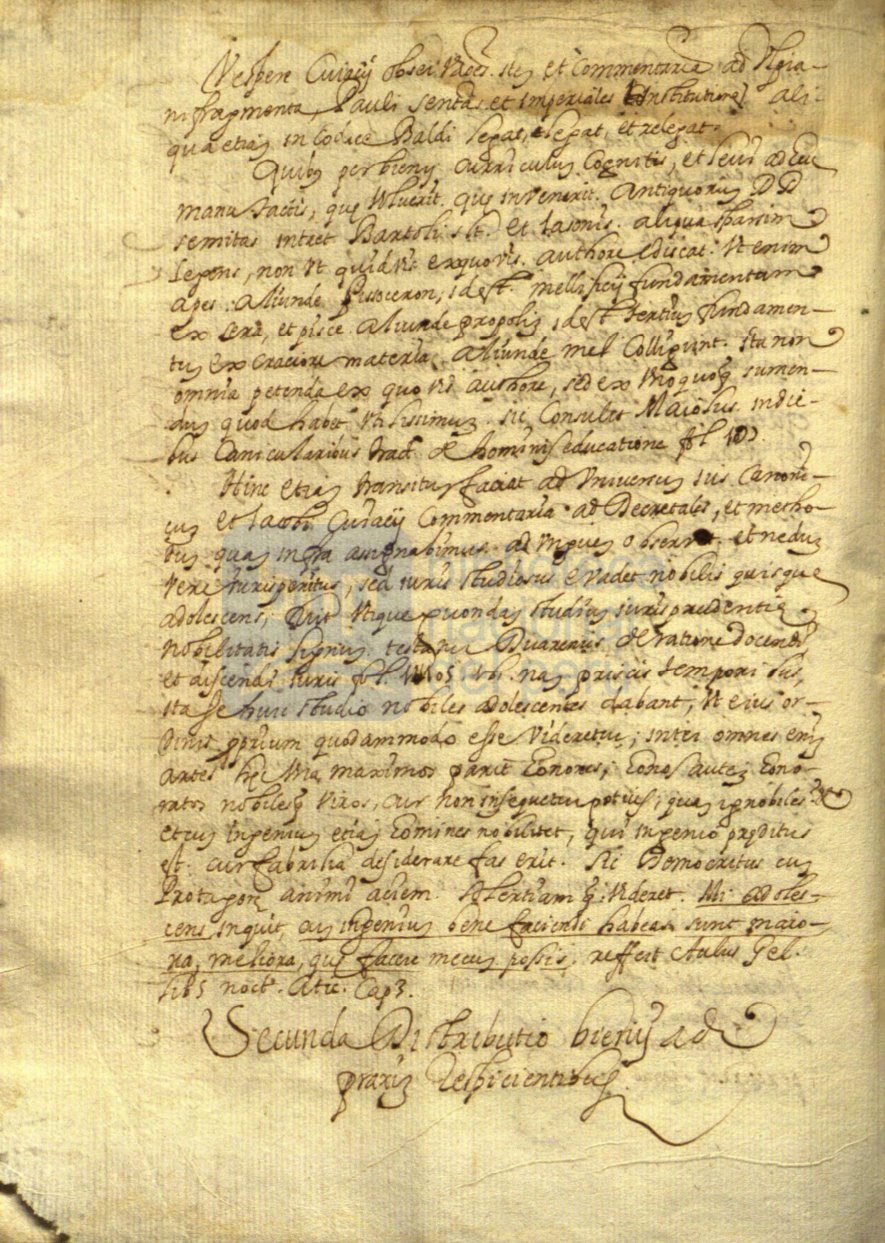 Vespere Cuiacij obseruaões. itē et Commentaria ad Vlpia-
ni fragmenta, Pauli sentās. et imperiales Institutiones ali-
qua etiaȝ in Codice Baldi legat,
Quibȝ per bieniȝ curriculuȝ Cognitis, et
manu tactis, que Antiquoruȝ DD
semitas intret Bartoli slt. et Iasonis. aliqua sparsim
legens, non vt quiduis ex quouis. authore ediscat. Vt enim
apes. aliunde pissoceron, idest. mellificij fundamentum
ex cera, et pice. aliunde propoliȝ, idest tertius fundamen-
tuȝ ex craciore materia. aliunde mel Colligunt. ita non
omnia petenda ex quo vis authore, sed ex vnoquoqȝ sumen-
duȝ quod habet vtilissimuȝ. sic Consulit Maiolus in die-
bus Canicularibus tract. de hominis educatione fol.
Hinc etiaȝ transituȝ faciat ad vniuersuȝ ius Canoni-
cuȝ et Iacobi Cuiacij Commentaria ad Decretales, et metho-
duȝ quaȝ infra assignabimus. ad vngueȝ obseruet. et neduȝ
vere iurisperitus, sed iuris studiosus euadet nobilis quisque
adolescens; fuit vtique quondaȝ studiuȝ iurisprudentiȩ
nobilitatis signuȝ testatur Duarenus de ratione docendi
et discendi iuris fol. 1105. vbi. naȝ priscis temporibus,
ita se huic studio nobiles adolescentes dabant, vt eius or-
dinis ꝓprium quodammodo esse videretur; inter omnes eniȝ
artes hȩc vna maximos parit honores; honos auteȝ hono-
ratos nobilesqȝ viros, cur non insequetur potius; quaȝ ignobiles?
et cuȝ ingeniuȝ etiaȝ homines nobilitet, qui ingenio prȩditus
est. cur fabrilia desiderare fas erit. sic Democritus cuȝ
Protagorȩ animi aciem. solertiamqȝ. videret. Mi adoles-
cens, inquit, cuȝ ingeniuȝ bene faciendi habeas. sunt maio-
ra, meliora, quȩ facere mecuȝ possis, reffert Aulus Gel.
lib5 noct. Atic. Cap3.
Secunda Distributio bieniȝ ad
praxiȝ respicientibus.